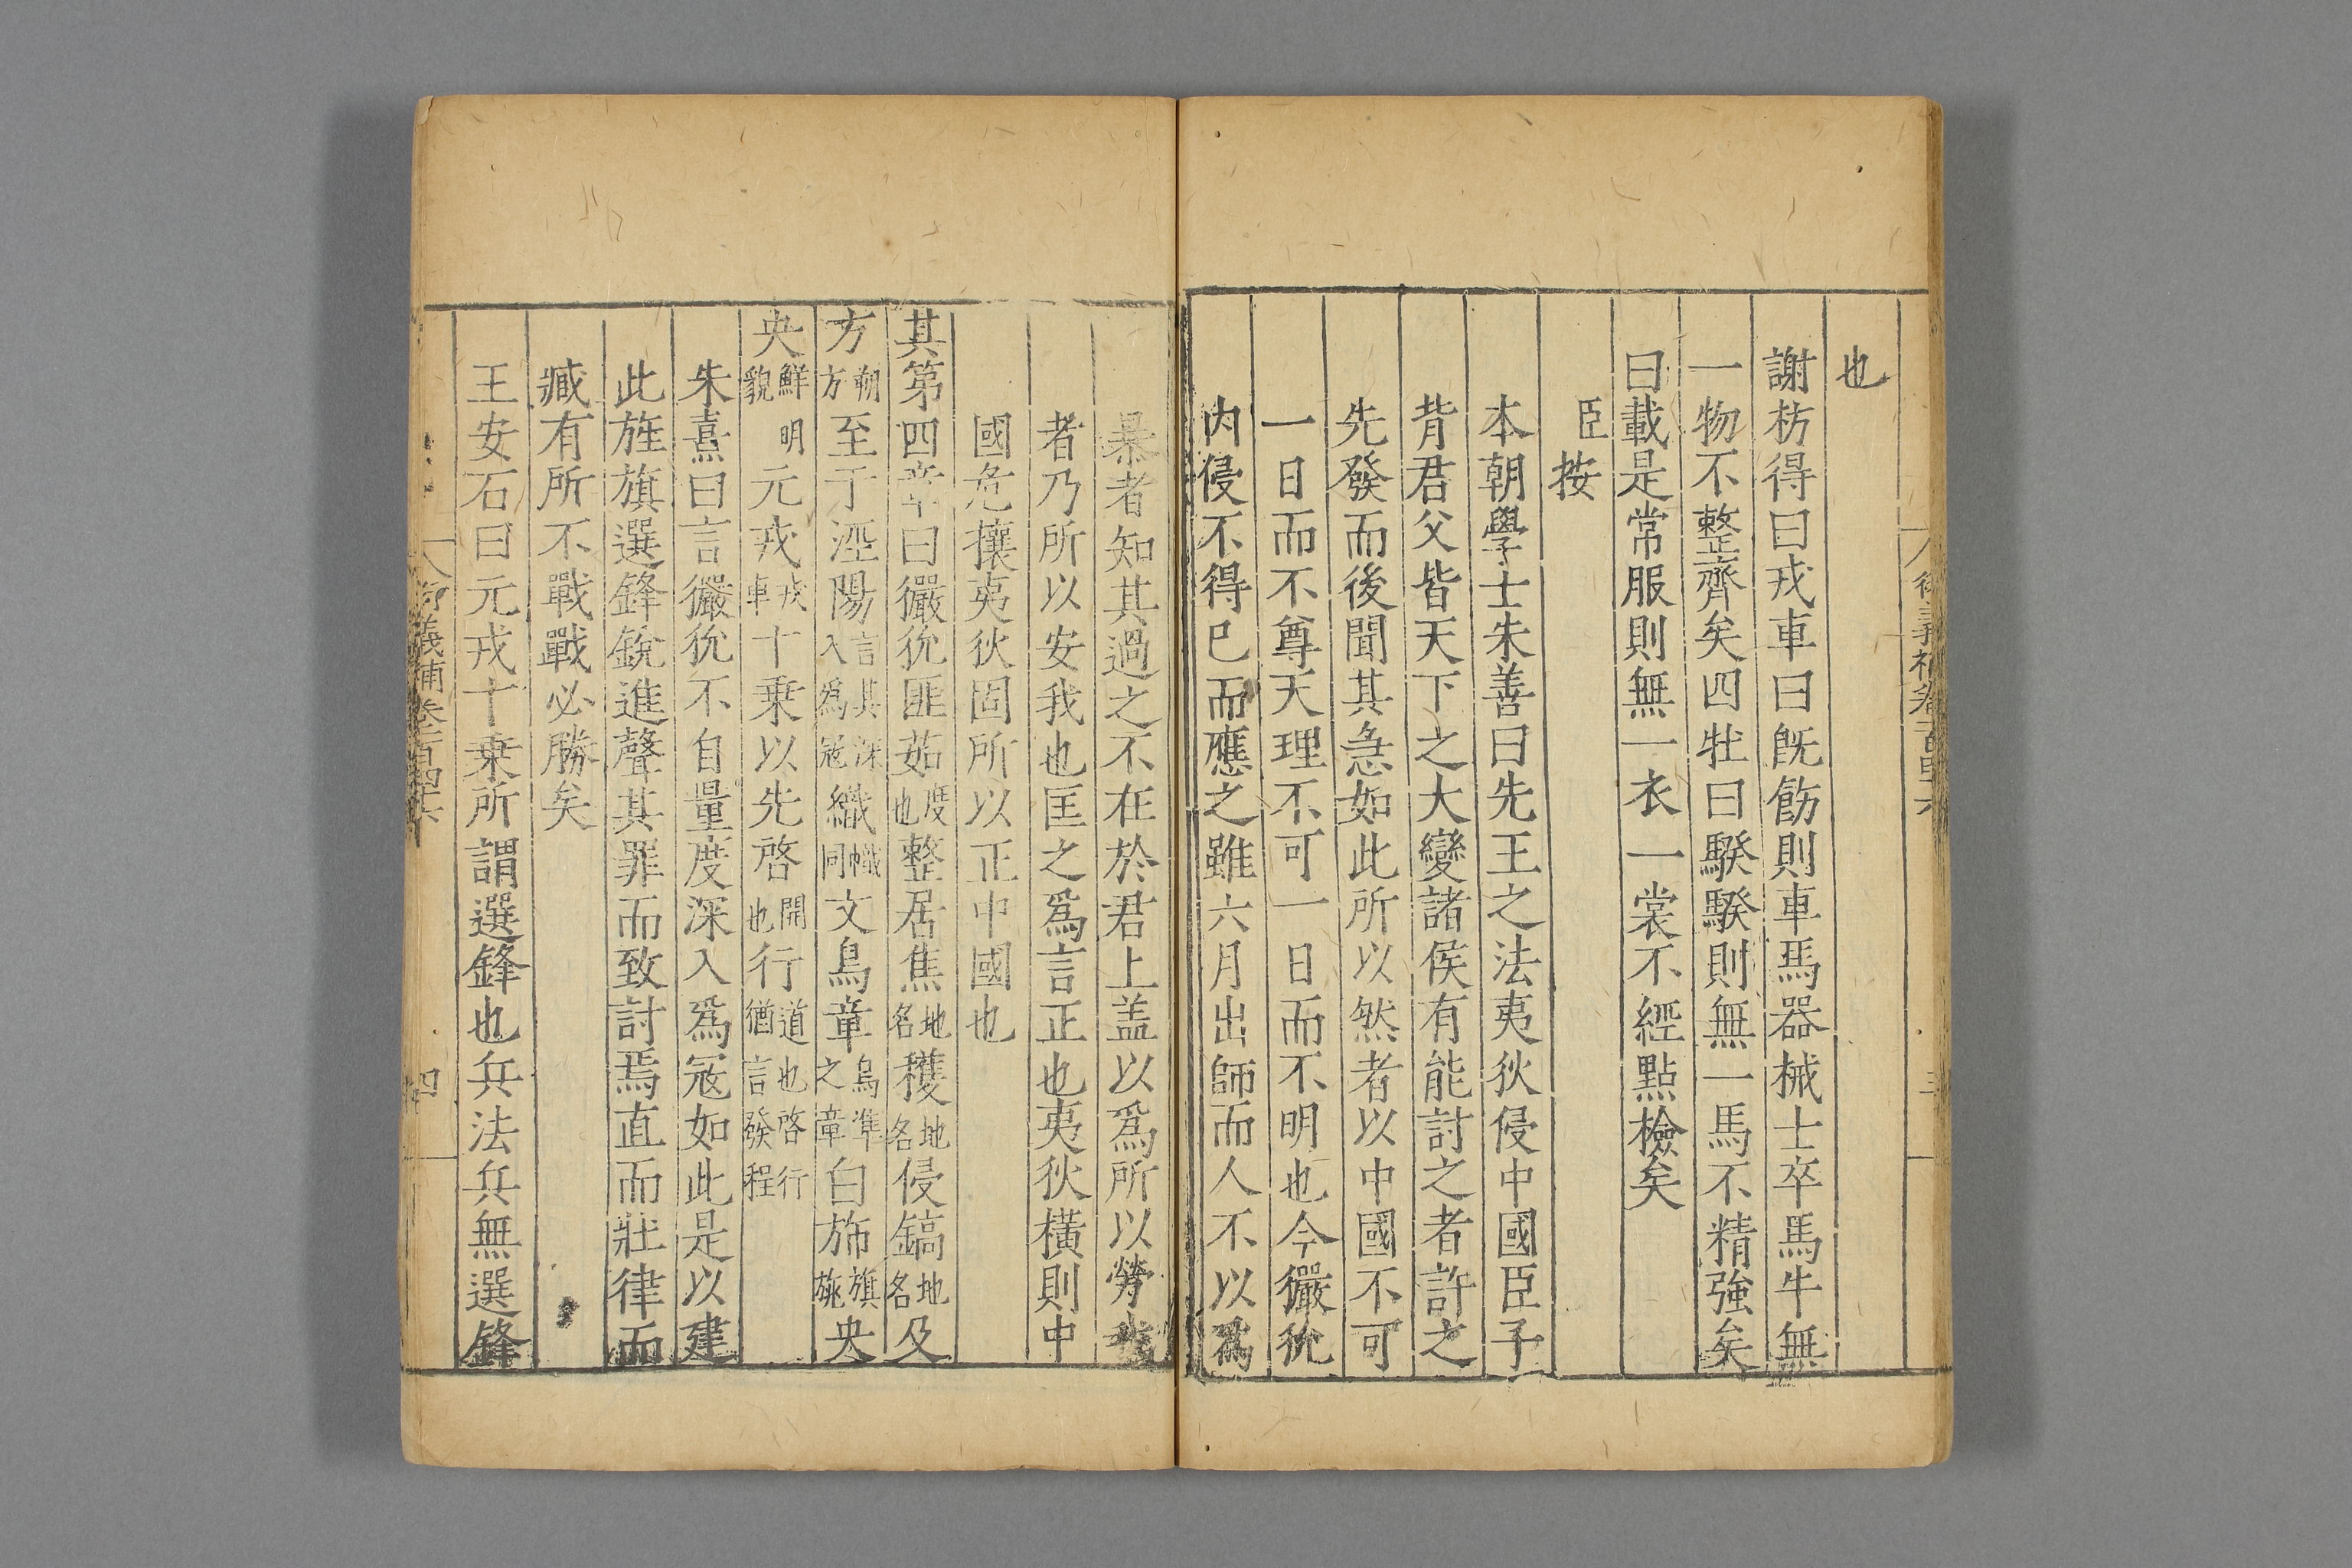 也
謝枋得曰戎車曰旣飭則車馬器械士卒馬牛無
一物不整齊矣四牡曰騤騤則無一馬不精強矣
曰載是常服則無一衣一裳不經點檢矣
臣按
本朝學士朱善曰先王之法夷狄侵中國臣子
背君父皆天下之大變諸侯有能討之者許之
先發而後聞其急如此所以然者以中國不可
一日而不尊天理不可一日而不明也今玁狁
内侵不得已而應之雖六月出師而人不以爲
暴者知其過之不在於君上盖以爲所以勞我
者乃所以安我也匡之爲言正也夷狄橫則中
國危攘夷狄固所以正中國也
其第四章曰玁狁匪茹度也整居焦地名穫地名侵鎬地名及
方朔方至于涇陽言其深入爲冦織幟同文鳥章鳥隼之章白斾旗旐央
央鮮明貌元戎戎車十乗以先啓開也行道也啓行猶言發程
朱熹曰言玁狁不自量度深入爲冦如此是以建
此旌旗選鋒銳進聲其罪而致討焉直而壯律而
臧有所不戰戰必勝矣
王安石曰元戎十乗所謂選鋒也兵法兵無選鋒
衍義補卷一百四十六
四